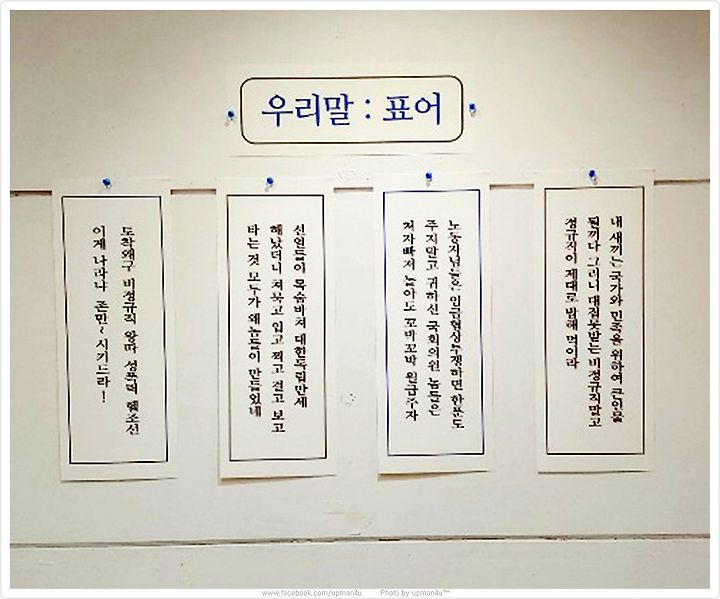 우리말 : 표어
내 새끼는 국가와 민족을 위하여 큰인물
될끼다 그러니 대접못받는 비정규직말고
정규직이 제대로 밥해 먹이라
노동자님들은 임금협상투쟁하면 한푼도
주지말고 귀하신 국회의원 놈들은
쳐자빠져 놀아도 꼬박꼬박 월급주자
선열들이 목숨바쳐 대한독립만세
해놨더니 쳐묵고 입고 찍고 걸고 보고
타는 것 모두가 왜놈들이 만들었네
도착왜구 비정규직 왕따 성폭력 헬조선
이게 나라냐 존만~ 시키드라!
www.facebook.com/upman4u Photo by upman4u™